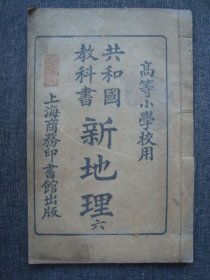 高等小學校用
共和國
教科書
新地理
六
上海商務印書館出版